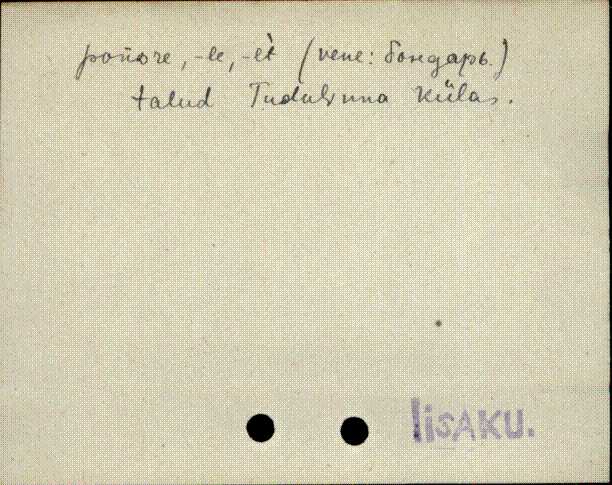 pońore, -le, -èt (vene: бондарь.)
talud Tudulinna külas.
IISAKU.